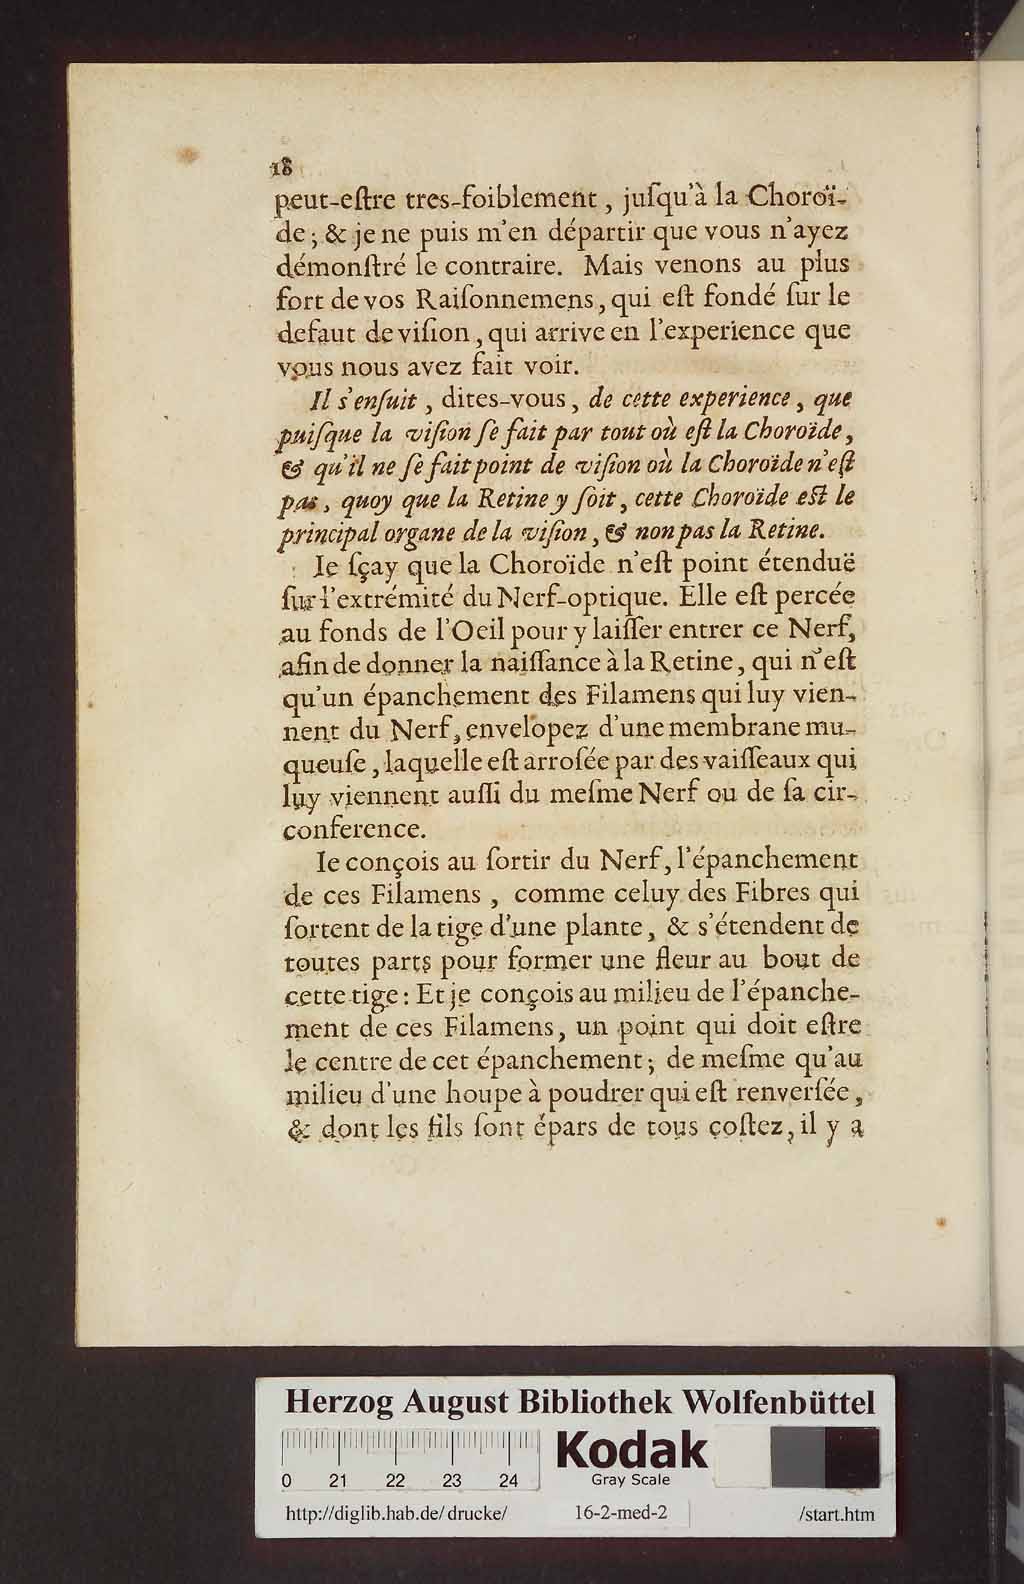 18
peut-eſtre tres-foiblement, juſqu'à la Choroï-
de; & je ne puis m'en départir que vous n'ayez
démonſtré le contraire. Mais venons au plus
fort de vos Raiſonnemens, qui eſt fondé ſur le
defaut de viſion, qui arrive en l'experience que
vous nous avez fait voir.
Il s'enſuit, dites-vous, de cette experience, que
puiſque la viſion ſe fait par tout où eſt la Choroïde,
& qu'il ne ſe fait point de viſion où la Choroïde n'eſt
pas, quoy que la Retine y ſoit, cette Choroïde eſt le
principal organe de la viſion, & non pas la Retine.
Ie ſçay que la Choroïde n'eſt point étenduë
ſur l'extrémité du Nerf-optique. Elle eſt percée
au fonds de l'Oeil pour y laiſſer entrer ce Nerf,
afin de donner la naiſſance à la Retine, qui n'eſt
qu'un épanchement des Filamens qui luy vien-
nent du Nerf, envelopez d'une membrane mu-
queuſe, laquelle eſt arroſée par des vaiſſeaux qui
luy viennent auſſi du meſme Nerf ou de ſa cir-
conference.
Ie conçois au ſortir du Nerf, l'épanchement
de ces Filamens, comme celuy des Fibres qui
ſortent de la tige d'une plante, & s'étendent de
toutes parts pour former une fleur au bout de
cette tige: Et je conçois au milieu de l'épanche-
ment de ces Filamens, un point qui doit eſtre
le centre de cet épanchement; de meſme qu'au
milieu d'une houpe à poudrer qui eſt renverſée,
& dont les fils ſont épars de tous coſtez, il y a
Herzog August Bibliothek Wolfenbüttel
0 21 22 23 24
Kodak
Gray Scale
http://diglib.hab.de/drucke/ 16-2-med-2 /start.htm